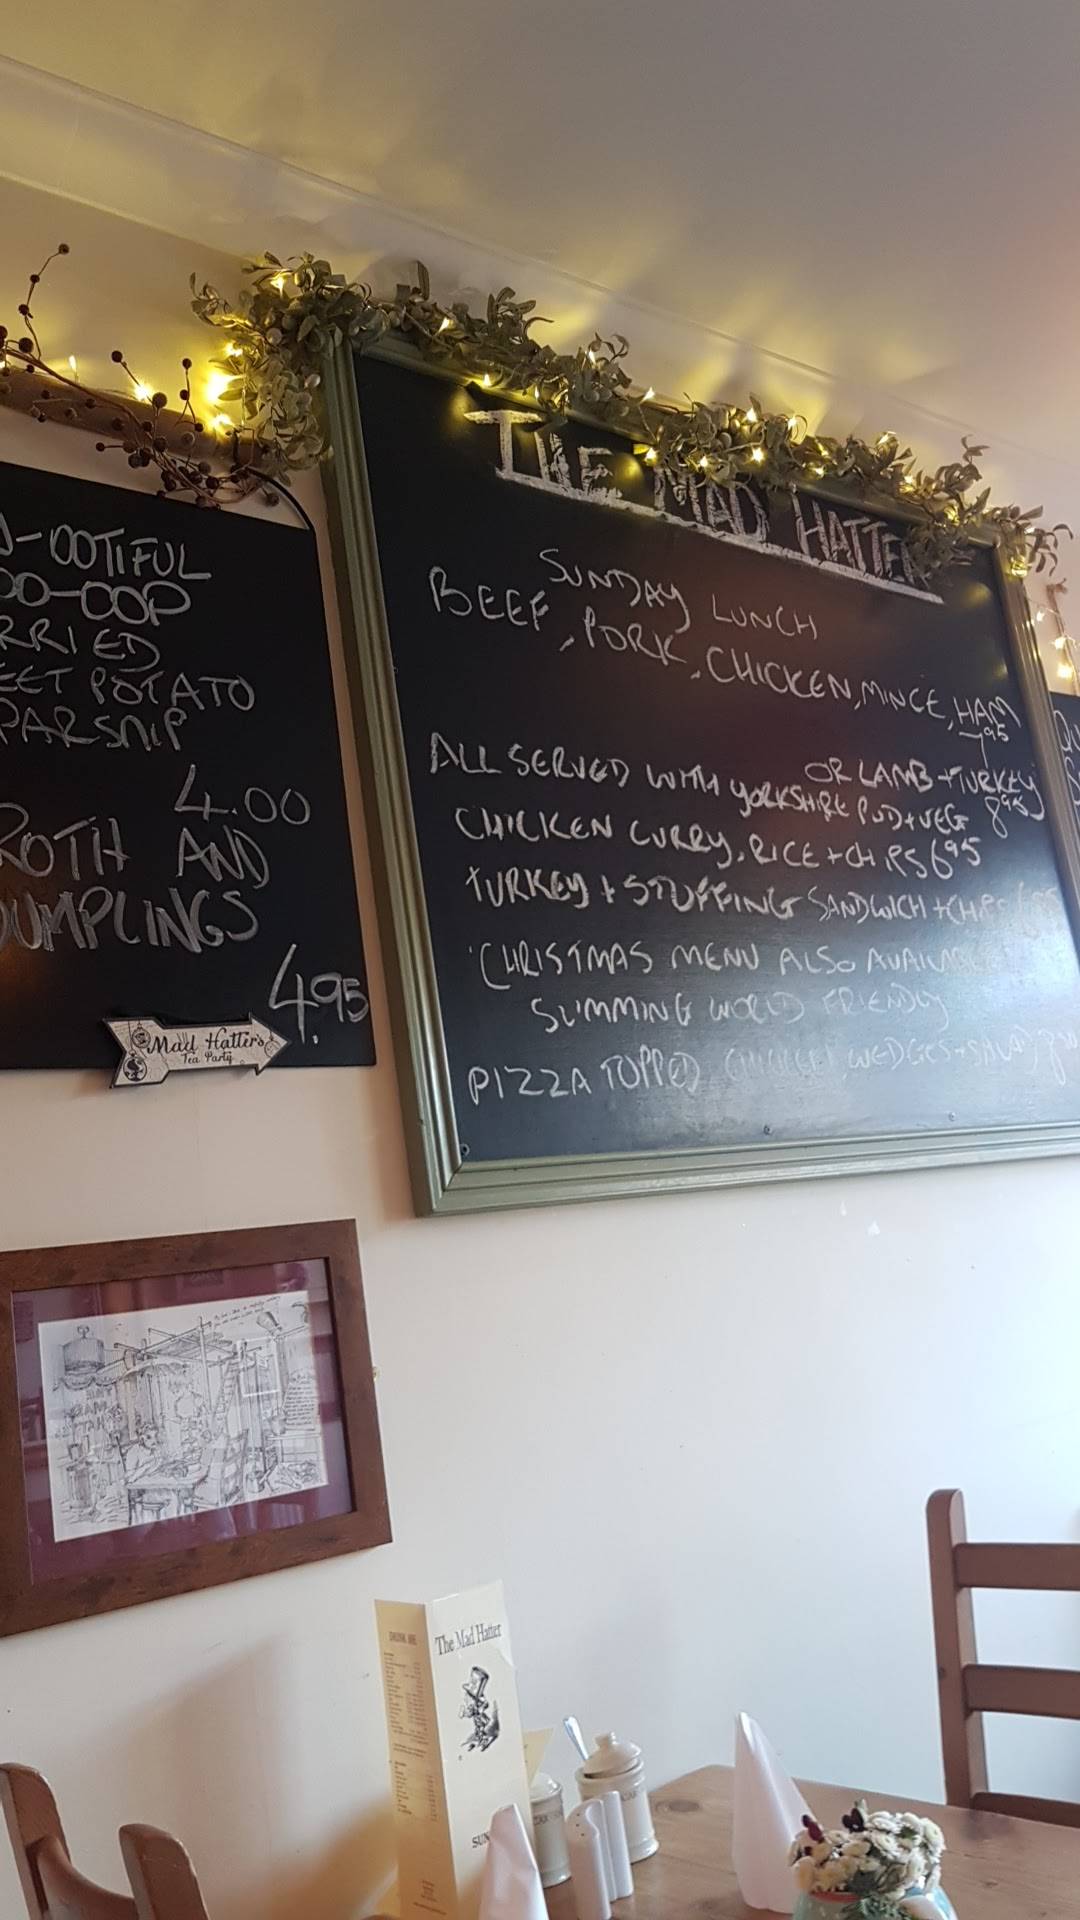 -OOTIFUL
OO-OOP
RRIED
EET POTATO
PARSNIP
4.00
ROTH AND
DUMPLINGS
4.95
Mad Hatter's
Tea Party
THE MAD HATTER
SUNDAY LUNCH
BEEF, PORK, CHICKEN, MINCE, HAM
7.95
OR LAMB + TURKEY
ALL SERVED WITH YORKSHIRE PUD + VEG 8.95
CHICKEN CURRY, RICE + CHIPS 6.95
TURKEY + STUFFING SANDWICH + CHIPS
CHRISTMAS MENU ALSO AVAILABLE
SLIMMING WORLD FRIENDLY
PIZZA TOPPED CHICKEN, WEDGES + SALAD
DRINK ME
The Mad Hatter
SUN